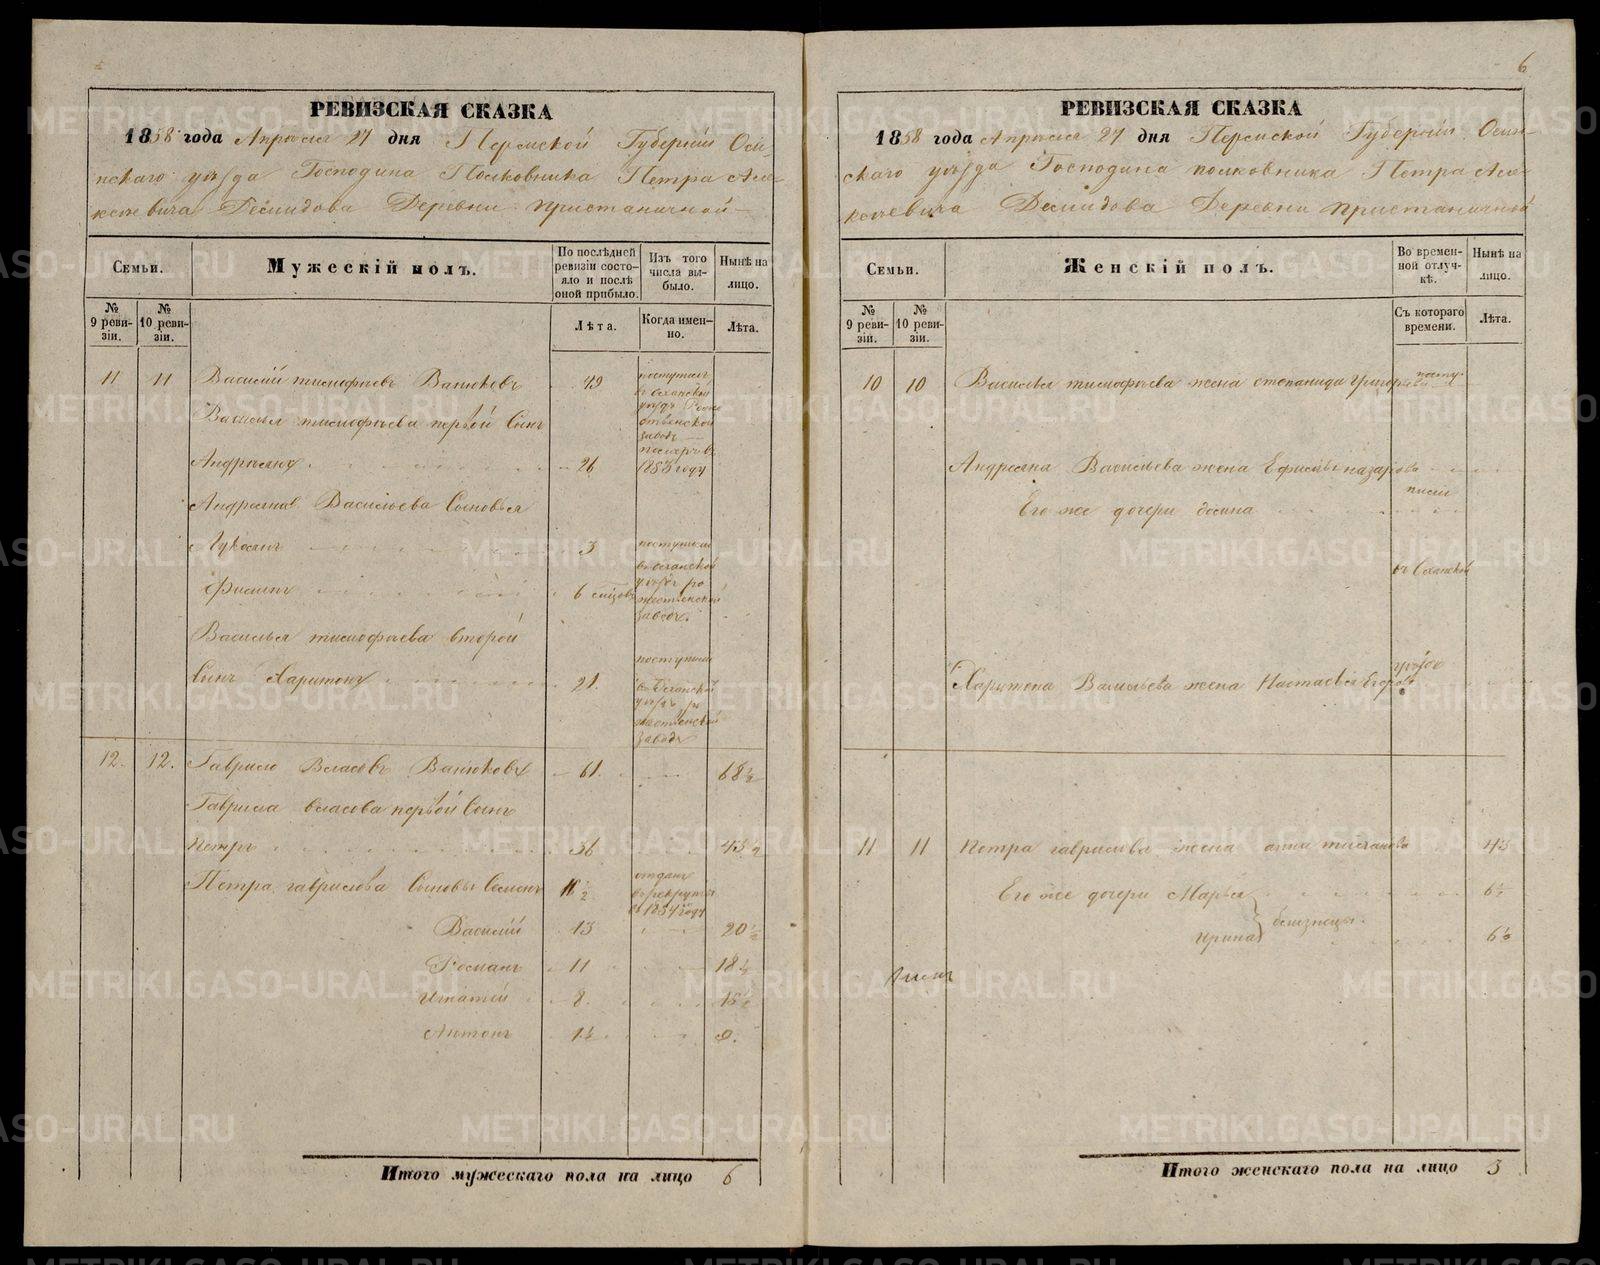 РЕВИЗСКАЯ СКАЗКА
1858 года Апреля 27 дня Пермской Губернии Оси-
нскаго уезда Господина Полковника Петра Але-
ксеевича Демидова Деревни Пристаничной
Семьи.
Мужескій полъ.
По послѣдней ревизіи состо-яло и послѣ оной прибыло.
Изъ того числа вы-было.
Нынѣ на лицо.
№ 9 реви-зіи.
№ 10 реви-зіи.
Лѣта.
Когда имен-но.
Лѣта.
11 11 Василій тимофѣевъ Ванюковъ 49
поступилъ
въ Оханской
уѣздъ
заводъ
Василья тимофѣева первой Сынъ
Андреянъ 26
1853 году
Андреяна Васильева Сыновья
Лукоянъ 3
поступили
въ Оханской
уѣздъ ро
заводъ.
Филипъ 6
Василья тимофѣева второй
Сынъ Харитонъ 21.
поступилъ
въ Оханской
уѣздъ ро
заводъ
12. 12. Гаврило Власовъ Ванюковъ 61. 68½
Гаврила власова первой Сынъ
Петръ 36 43½
Петра гаврилова Сыновья Семенъ
отданъ
въ рекруты
въ 1854 году
Василій 13 20½
Романъ 11 18½
Игнатей 8. 15½
Антонъ 1½ 9.
Итого мужескаго пола на лицо 6
6
РЕВИЗСКАЯ СКАЗКА
1858 года Апреля 27 дня Пермской Губернии Осин-
скаго уезда Господина полковника Петра Але-
ксеевича Демидова Деревни Пристаничной
Семьи.
Женскій полъ.
Во времен-ной отлуч-кѣ.
Нынѣ на лицо.
№ 9 реви-зіи.
№ 10 реви-зіи.
Съ котораго времени.
Лѣта.
10 10 Василья тимофѣева жена степанида григорьева посту-
Андреяна Васильева жена Ефимья назарова
пили
Его же дочери
въ Оханской
уѣздъ
Харитона Васильева жена Настасья Егорова
11 11 Петра гаврилова жена анна 43
Его же дочери Марья 6½
близнецы.
Ирина 6½
Итого женскаго пола на лицо 3
METRIKI.GASO-URAL.RU